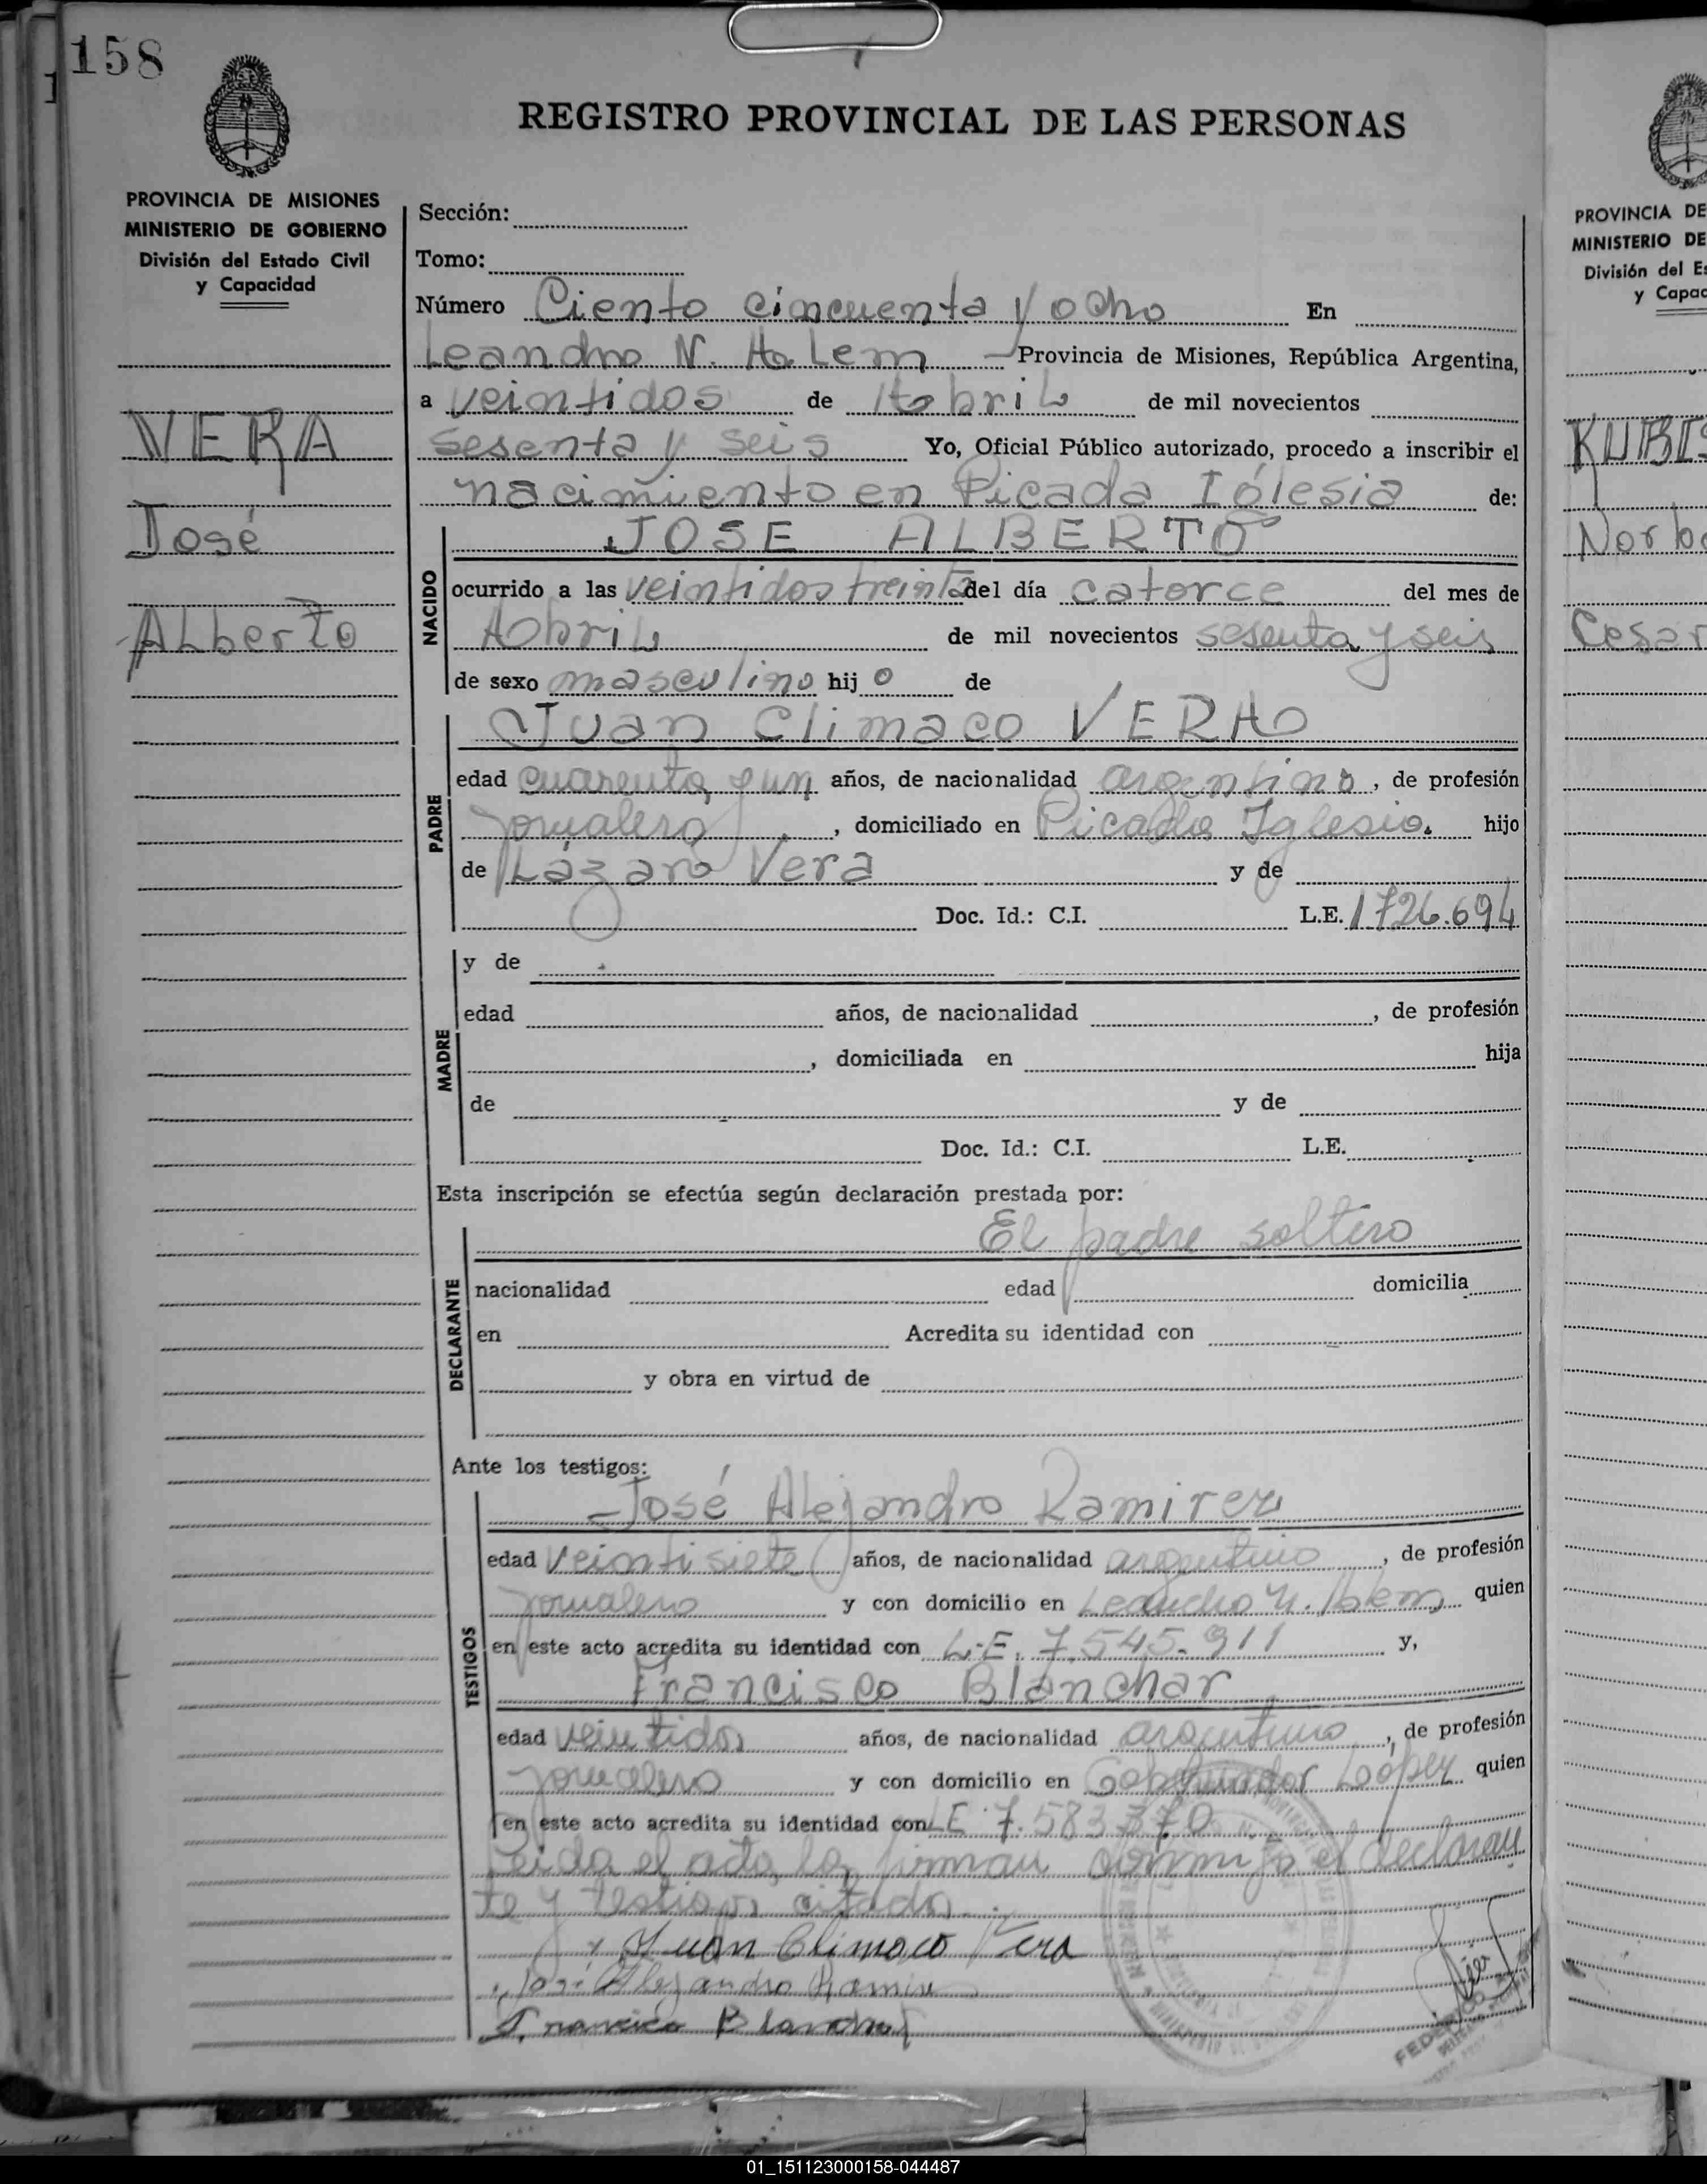 158
REGISTRO PROVINCIAL DE LAS PERSONAS
PROVINCIA DE MISIONES
MINISTERIO DE GOBIERNO
División del Estado Civil
y Capacidad
VERA
José
Alberto
Sección:
Tomo:
Número Ciento cincuenta y ocho En
Leandro N. Alem Provincia de Misiones, República Argentina,
a veintidos de Abril de mil novecientos
sesenta y seis Yo, Oficial Público autorizado, procedo a inscribir el
nacimiento en Picada Iglesia de:
NACIDO
JOSE ALBERTO
ocurrido a las veintidos treinta del día catorce del mes de
Abril de mil novecientos sesenta y seis
de sexo masculino hij o de
PADRE
Juan Climaco VERA
edad cuarenta y un años, de nacionalidad argentino, de profesión
jornalero, domiciliado en Picada Iglesia. hijo
de Lázaro Vera y de
Doc. Id.: C.I. L.E. 1726.694
MADRE
y de
edad años, de nacionalidad , de profesión
, domiciliada en hija
de y de
Doc. Id.: C.I. L.E.
Esta inscripción se efectúa según declaración prestada por:
DECLARANTE
El padre soltero
nacionalidad edad domicilia
en Acredita su identidad con
y obra en virtud de
Ante los testigos:
TESTIGOS
José Alejandro Ramirez
edad veintisiete años, de nacionalidad argentino, de profesión
jornalero y con domicilio en Leandro N. Alem quien
en este acto acredita su identidad con L.E. 7.545.911 y,
Francisco Blanchar
edad veintidos años, de nacionalidad argentino, de profesión
jornalero y con domicilio en Gobernador Lopez quien
en este acto acredita su identidad con LE 7.583.370
Leida el acta, la firman conmigo el declaran
te y testigos citados.
Juan Climaco Vera
José Alejandro Ramirez
Francisco Blanchar
FEDERICO
PROVINCIA DE
MINISTERIO DE
División del Es
y Capac
KUBIS
Norbe
Cesar
01_151123000158-044487